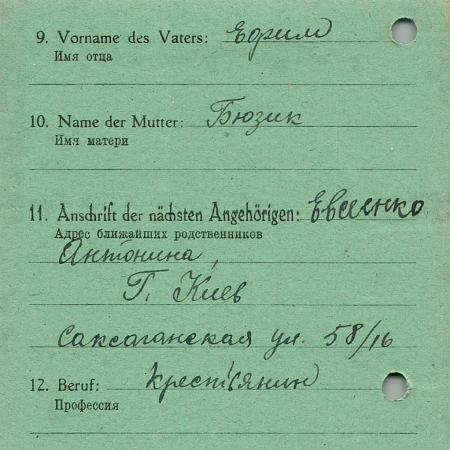 9. Vorname des Vaters: Ефим
Имя отца
10. Name der Mutter: Бюзик
Имя матери
11. Anschrift der nächsten Angehörigen: Евсиенко
Адрес ближайших родственников
Антонина,
Г. Киев
Саксаганская ул. 58/16
12. Beruf: крестьянин
Профессия